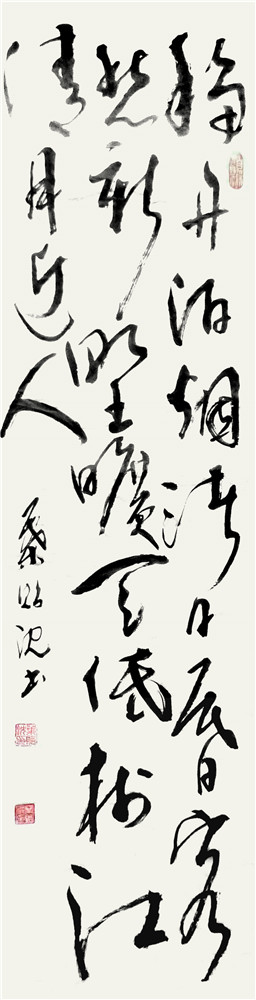 移舟泊烟渚日暮客
愁新野曠天低树江
清月近人
书